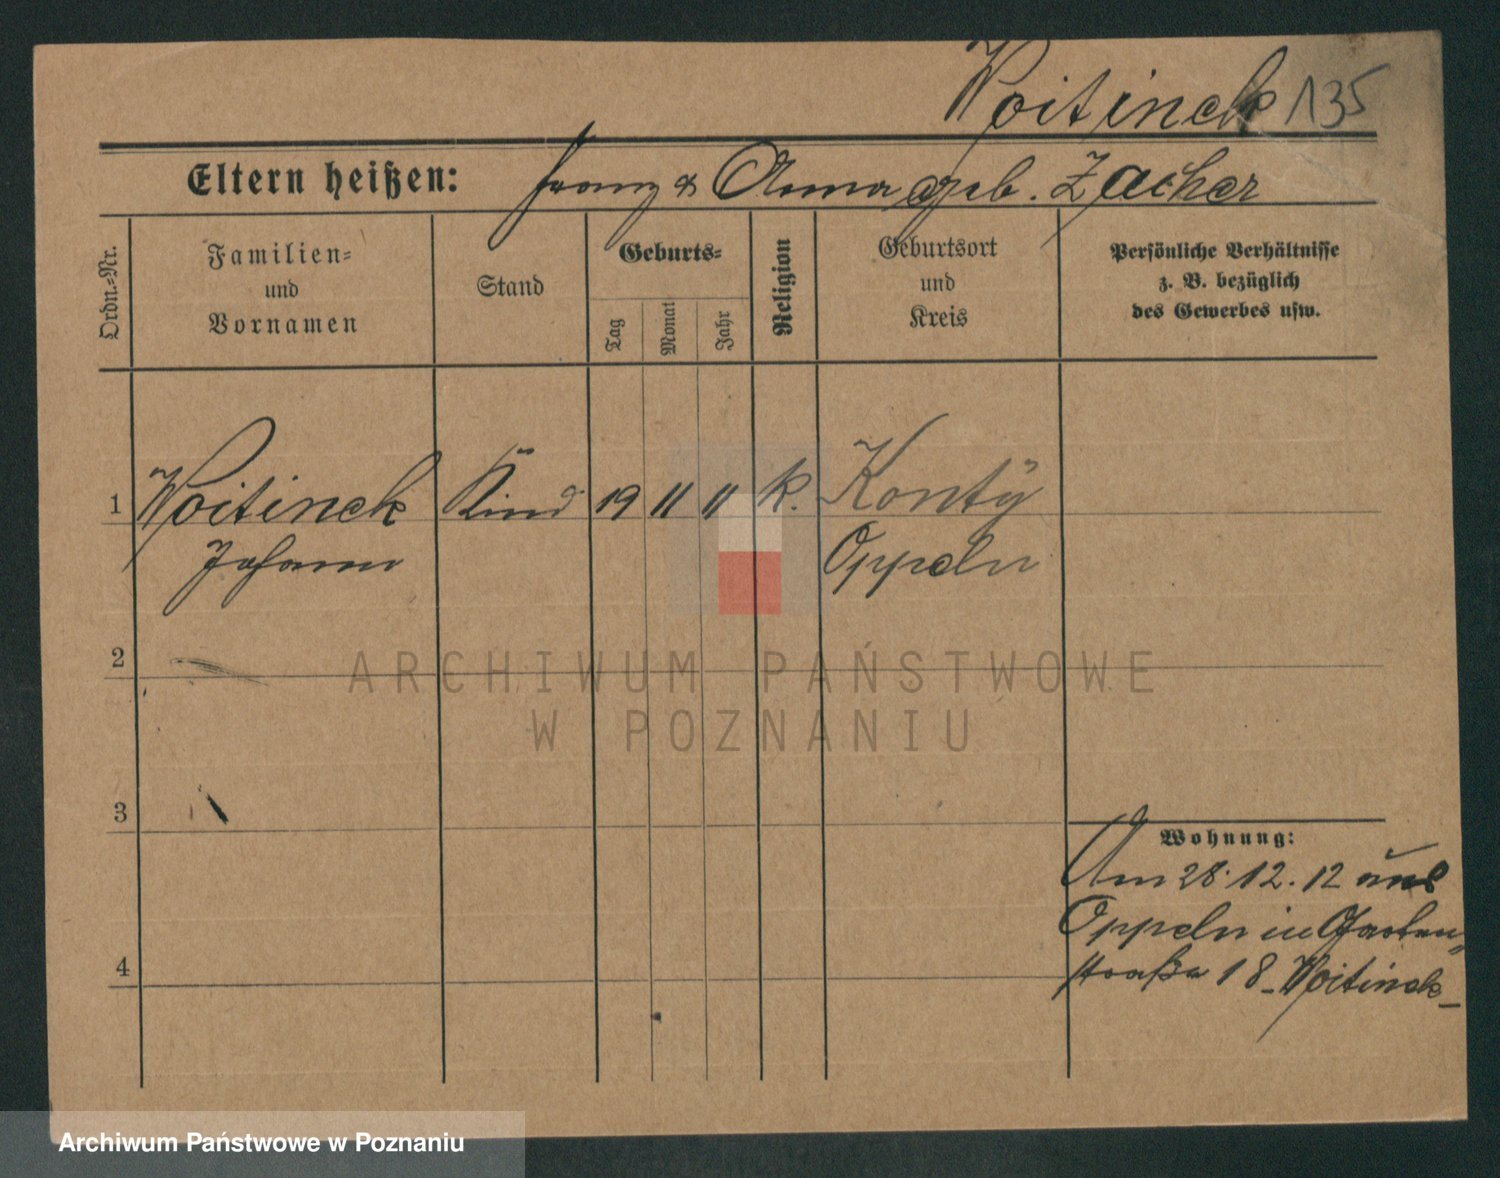 Woitinek 135
Eltern heißen: Franz & Anna geb. Zacher
Ordn.=Nr.
Familien=
und
Vornamen
Stand
Geburts=
Tag
Monat
Jahr
Religion
Geburtsort
und
Kreis
Persönliche Verhältnisse
z. B. bezüglich
des Gewerbes usw.
1 Woitinek Kind 19 11 11 k. Konty
Johann Oppeln
2
ARCHIWUM PAŃSTWOWE
W POZNANIU
3
Wohnung:
Am 28.12.12 aus
Oppeln in Garten-
straße 18 - Woitinek -
4
Archiwum Państwowe w Poznaniu